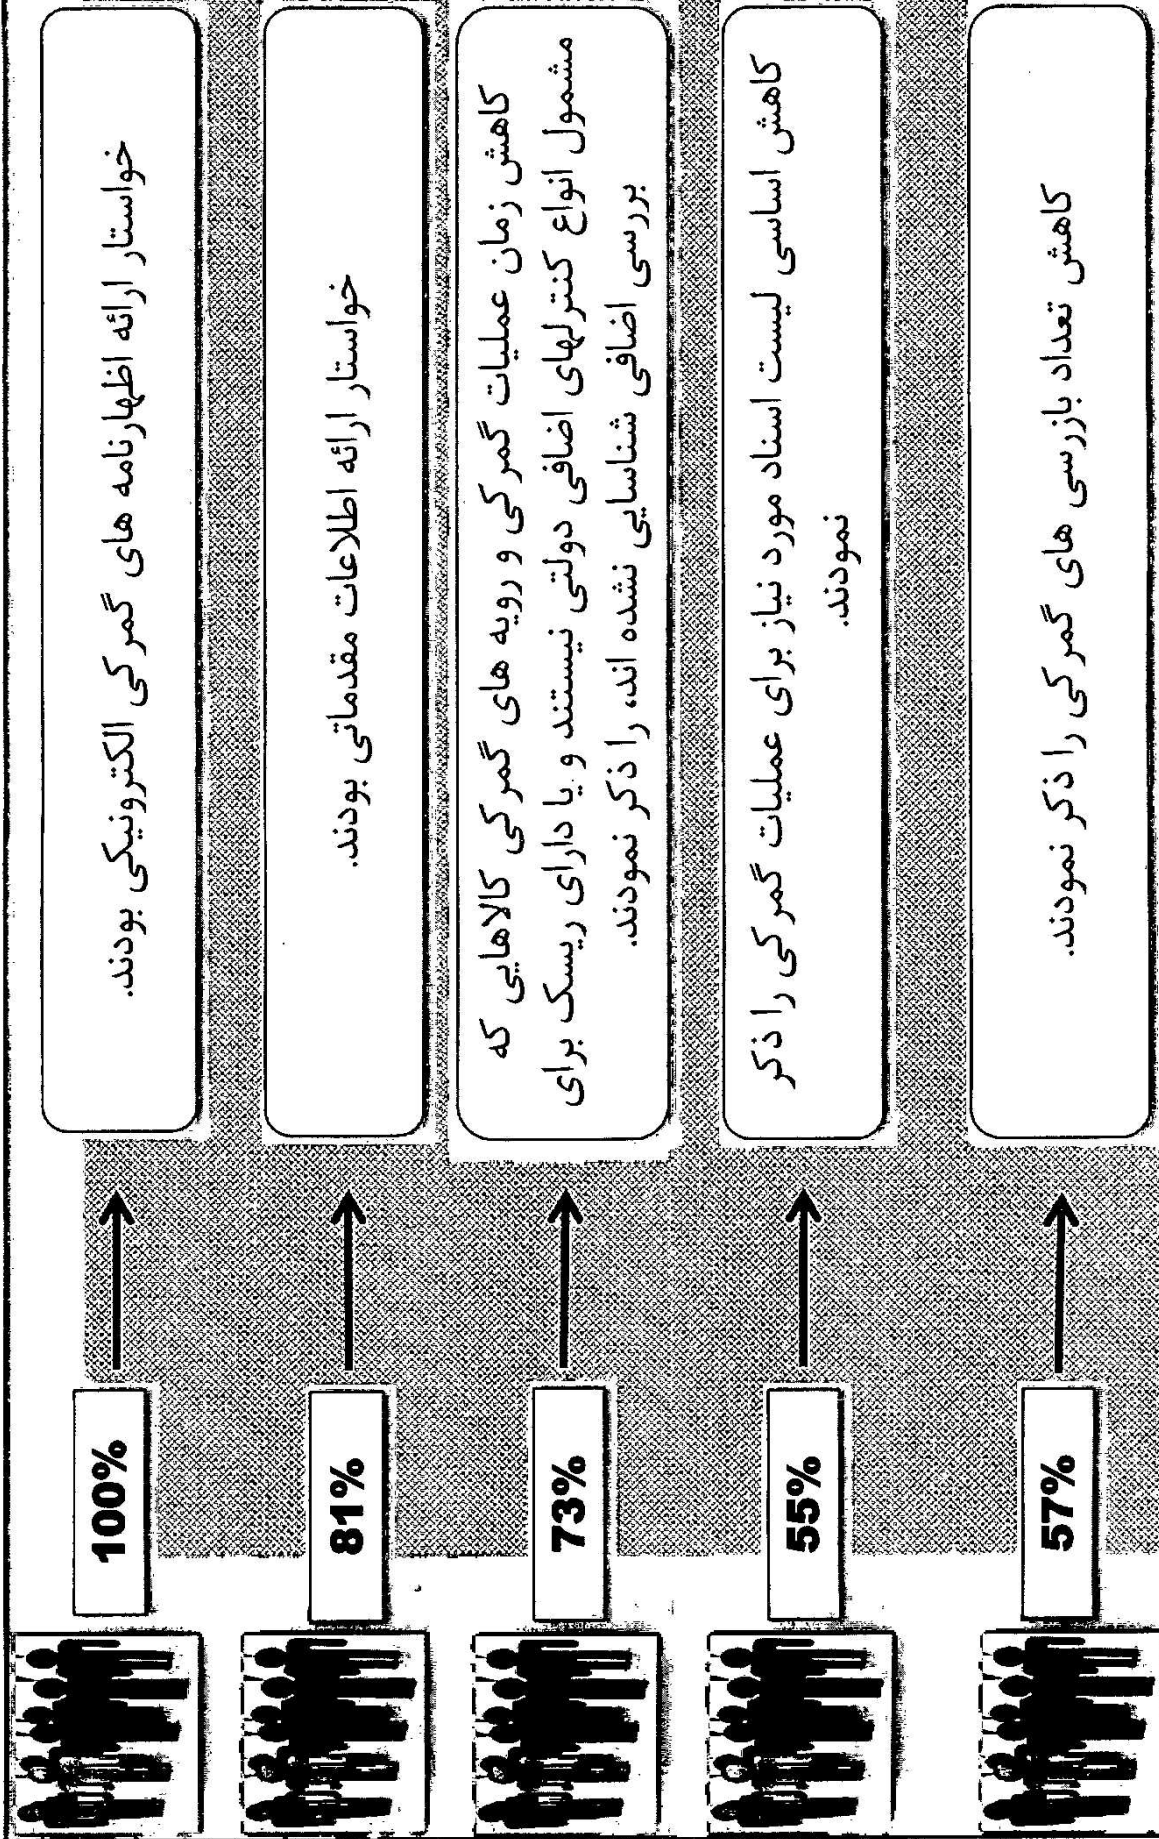 100%
خواستار ارائه اظهارنامه های گمرکی الکترونیکی بودند.
81%
خواستار ارائه اطلاعات مقدماتی بودند.
73%
کاهش زمان عملیات گمرکی و رویه های گمرکی کالاهایی که
مشمول انواع کنترلهای اضافی دولتی نیستند و یا دارای ریسک برای
بررسی اضافی شناسایی نشده اند، را ذکر نمودند.
55%
کاهش اساسی لیست اسناد مورد نیاز برای عملیات گمرکی را ذکر
نمودند.
57%
کاهش تعداد بازرسی های گمرکی را ذکر نمودند.